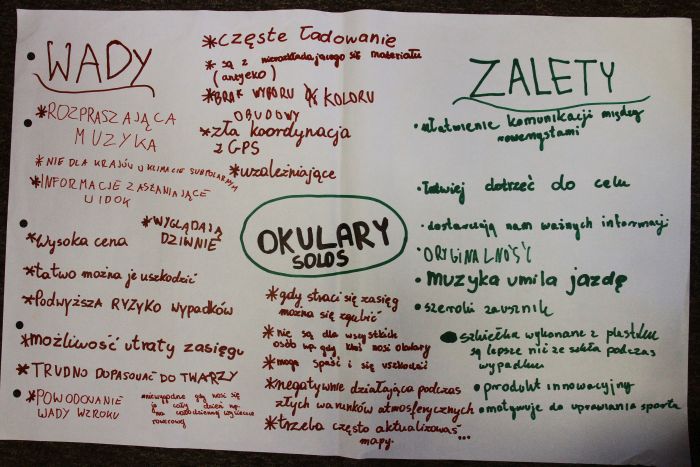 WADY
*ROZPRASZAJĄCA
MUZYKA
*NIE DLA KRAJÓW O KLIMACIE SUBPOLARNYM
*INFORMACJE ZASŁANIAJĄCE
WIDOK
*WYGLĄDAJĄ
DZIWNIE
*Wysoka cena
*łatwo można je uszkodzić
*Podwyższa RYZYKO wypadków
*możliwość utraty zasięgu
*TRUDNO DOPASOWAĆ DO TWARZY
*POWODOWANIE
WADY WZROKU
niewygodne gdy nosi się
je cały dzień np.
na całodziennej wycieczce
rowerowej
*częste ładowanie
*są z nierozkładającego się materiału
(antyeko)
*BRAK WYBORU KOLORU
OBUDOWY
*zła koordynacja
z GPS
*uzależniające
OKULARY
SOLOS
*gdy straci się zasięg
można się zgubić
*nie są dla wszystkich
osób np. gdy ktoś nosi okulary
*mogą spaść i się uszkodzić
*negatywnie działająca podczas
złych warunków atmosferycznych
*trzeba często aktualizować
mapy...
ZALETY
• ułatwienie komunikacji między
rowerzystami
• łatwiej dotrzeć do celu
• dostarczają nam ważnych informacji
• ORYGINALNOŚĆ
• muzyka umila jazdę
• szeroki zausznik
• szkiełka wykonane z plastiku
są lepsze niż ze szkła podczas
wypadku
• produkt innowacyjny
• motywuje do uprawiania sportu